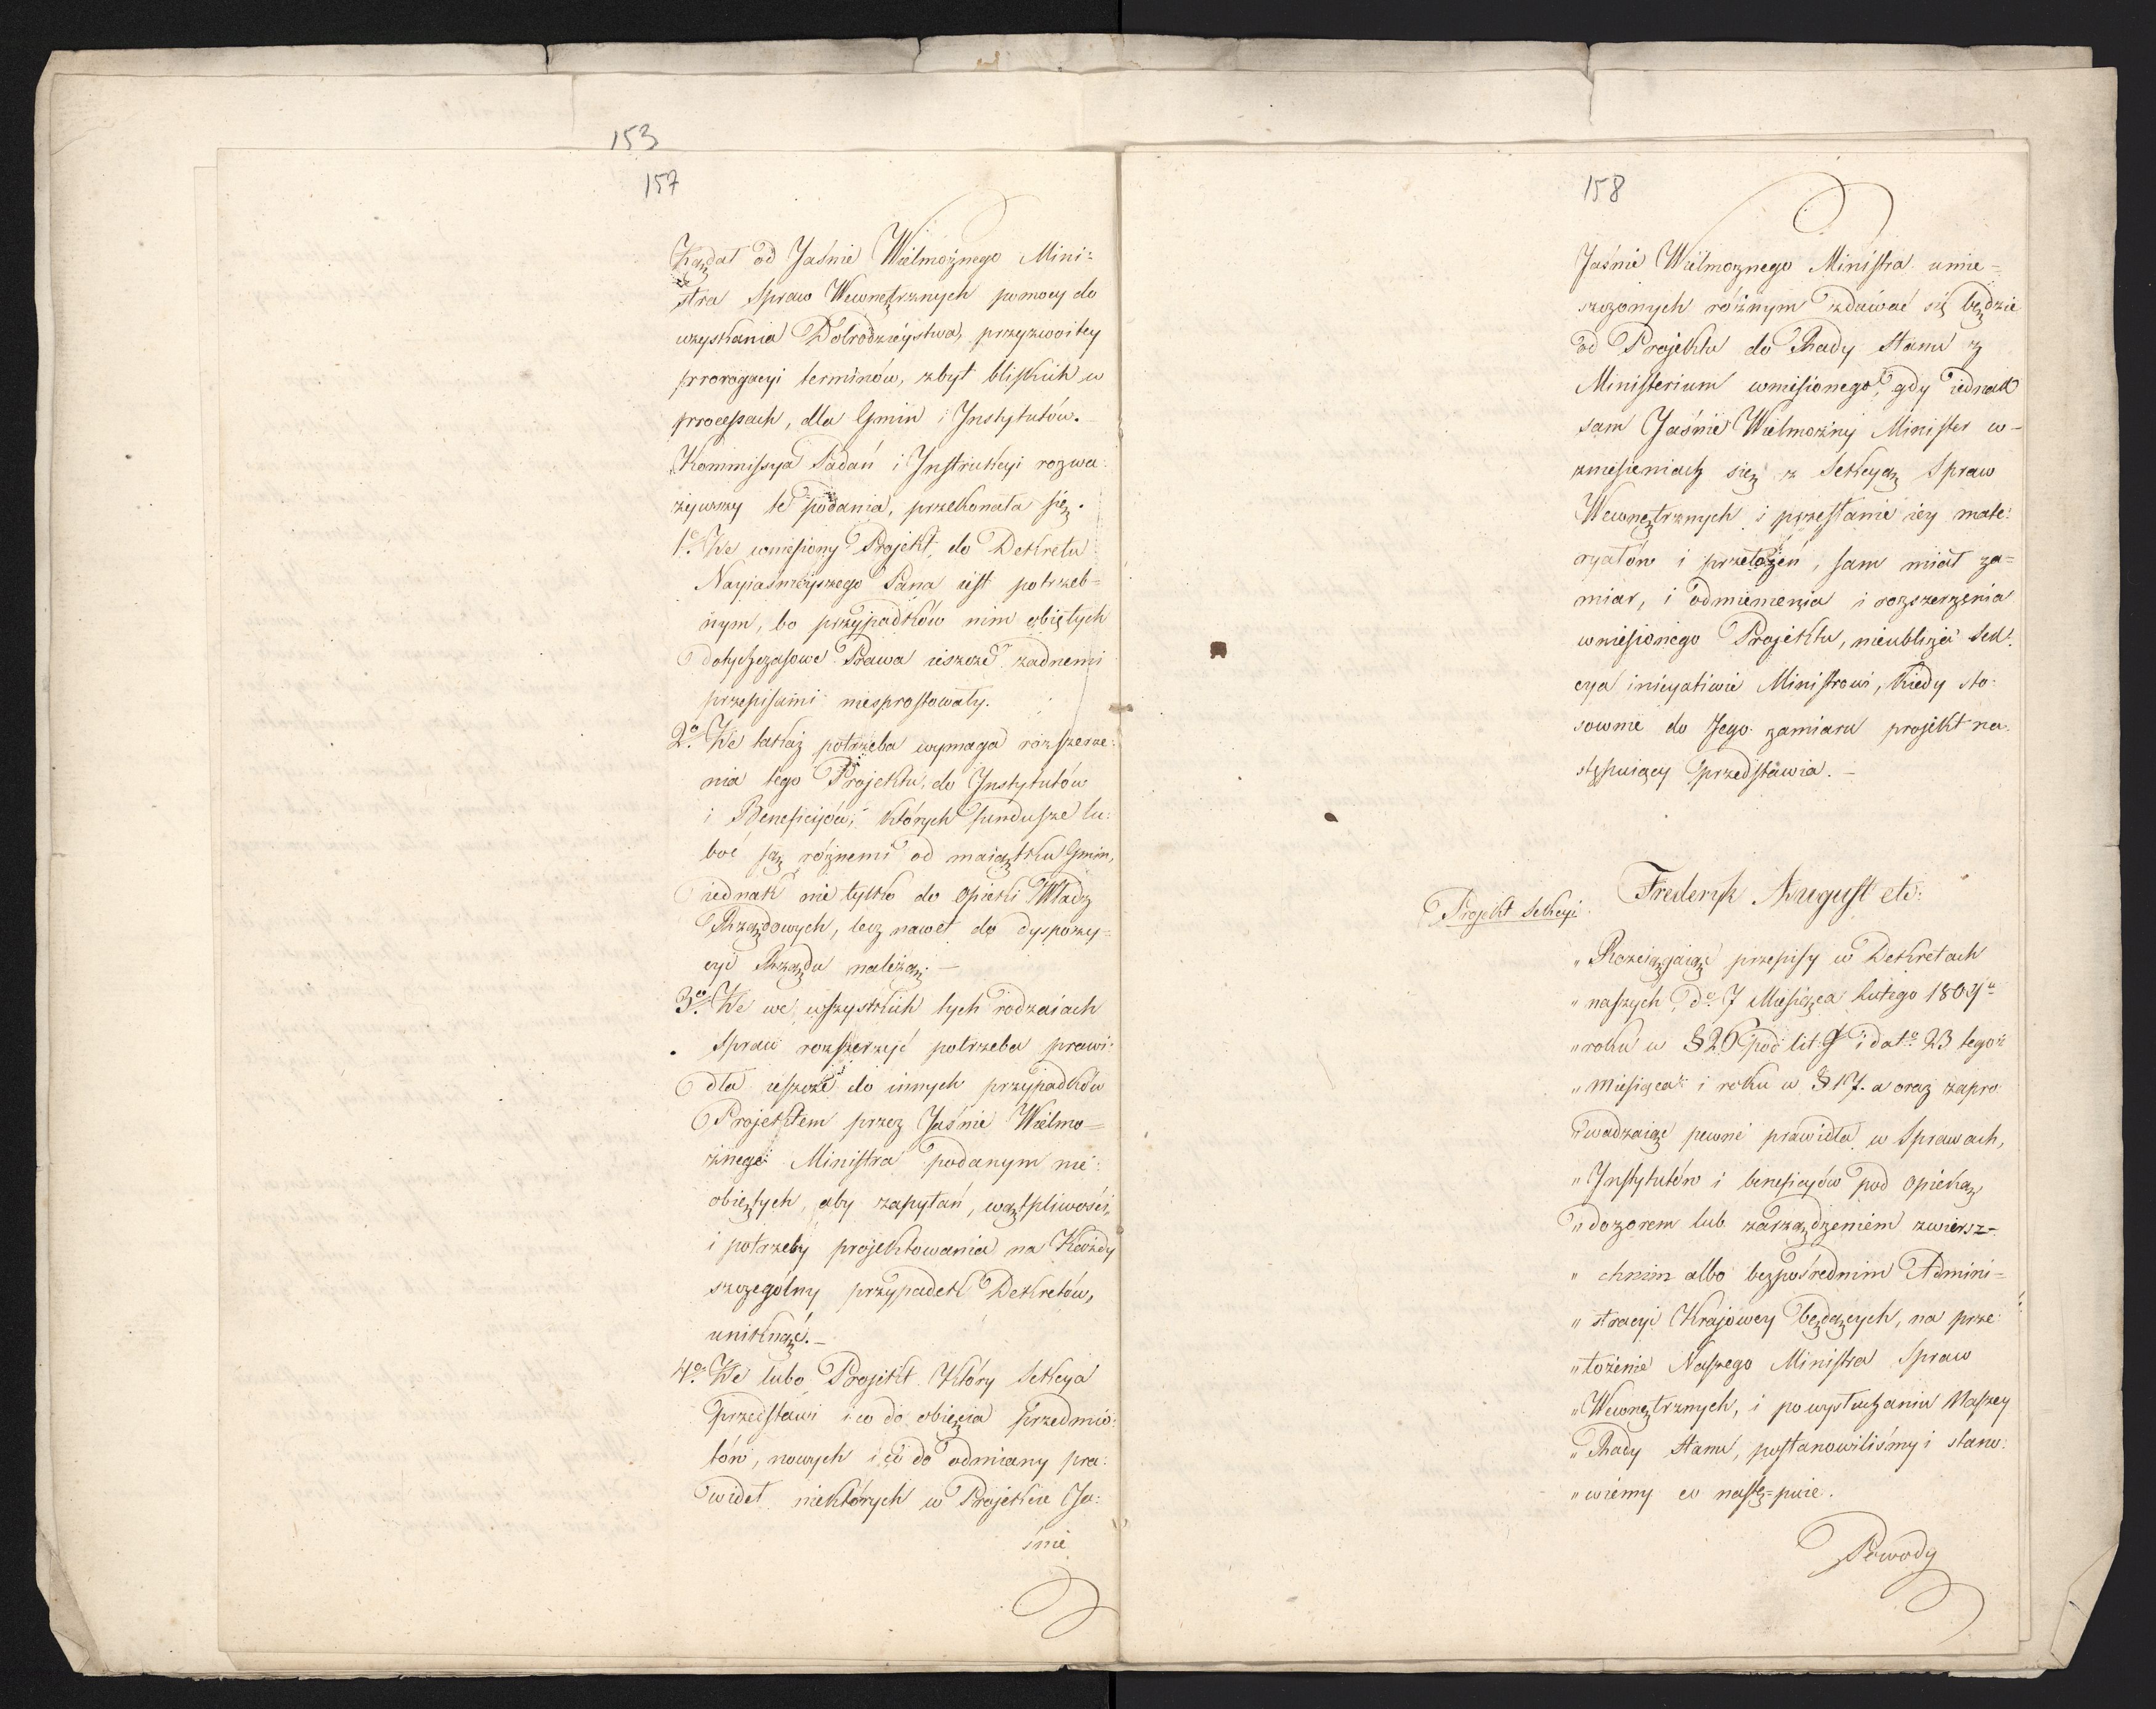 153
157
Żądał od Jaśnie Wielmożnego Mini=
stra Spraw Wewnętrznych pomocy do
uzyskania Dobrodzieystwa, przyzwoitey
prorogacyi terminów, zbyt bliskich w
processach, dla Gmin i Jnstytutów.
Kommissya Podań i Jnstrukcyi rozwa:
żywszy te podania, przekonała się.
1o Że wniesiony Projekt, do Dekretu
Nayiaśnieyszego Pana iest potrzeb=
nym, bo przypadków nim obiętych
dotychczasowe Prawa ieszcze żadnemi
przepisami niesprostowały.
2o Że takaż potrzeba wymaga rozszerze:
nia tego Projektu, do Jnstytutów
i Beneficyów, których fundusze lu:
boć są różnemi od maiątku Gmin,
iednak nie tylko do Opieki Władz
Rządowych, lecz nawet do dyspozy=
cyi Rządu należą. —
3o Że we wszystkich tych rodzaiach
Spraw rozszerzyć potrzeba prawi:
dła ieszcze do innych przypadków
Projektem przez Jaśnie Wielmo=
żnego Ministra podanym nie:
obiętych, aby zapytań, wątpliwości,
i potrzeby projektowania na Każdy
szczególny przypadek Dekretów,
uniknąć. —
4o Że lubo Projekt Który Sekcya
przedstawi i co do obięcia przedmio:
tów, nowych i co do odmiany pra:
wideł niektórych w Projekcie Ja:
śnie
158
Jaśnie Wielmożnego Ministra umie=
szczonych różnym zdawać się będzie
od Projektu do Rady Stanu z
Ministerium wniesionego, gdy iednak
sam Jaśnie Wielmożny Minister w=
zniesieniach się z Sekcyą Spraw
Wewnętrznych i przesłanie iey mate:
ryałów i przełożeń, sam miał za=
miar, i odmienienia i rozszerzenia
wniesionego Projektu, nieubliża Sek:
cya inicyatiwie Ministrowi, kiedy sto:
sownie do Jego zamiaru projekt na:
stępuiący przedstawia. —
Projekt Sekcyi
Frederyk August etc:
„ Rozciągaiąc przepisy w Dekretach
„ naszych do 7 Miesiąca Lutego 1809o
„ roku w § 26 pod lit. g i dato 23 tegoż
„ Miesiąca i roku w § 17. a oraz zapro:
„ wadzaiąc pewne prawidła w Sprawach,
„ Jnstytutów i beneficyów pod opieką
„ dozorem lub zarządzeniem zwierz=
„ chnim albo bezpośrednim Admini=
„ stracyi Krajowey będących, na prze:
„ łożenie Naszego Ministra Spraw
„ Wewnętrznych, i po wysłuchaniu Naszey
„ Rady Stanu, postanowiliśmy i stano:
„ wiemy co nastę=puie.
Powody